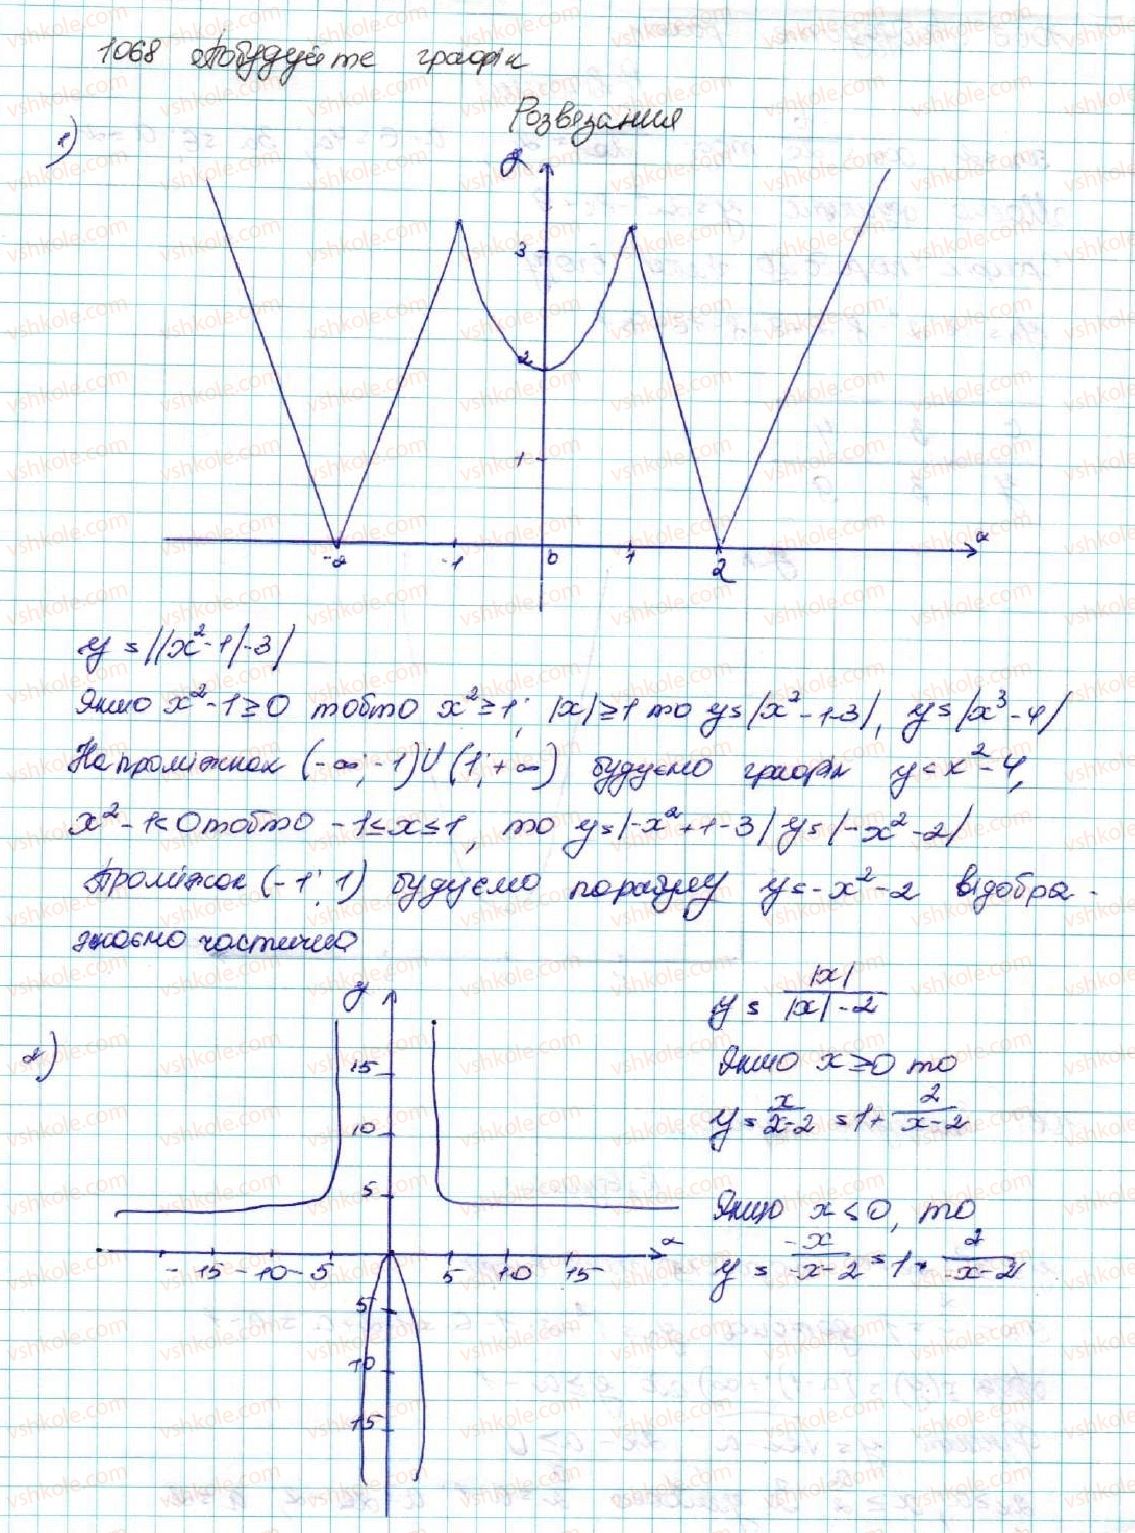 1068 Побудуйте графік
Розвязання
1)
y
3
2
1
-2 -1 0 1 2 x
y = ||x²-1|-3|
Якшо x²-1≥0 тобто x²≥1; |x|≥1 то y=|x²-1-3|, y=|x³-4|
На проміжнок (-∞;-1)∪(1;+∞) будуємо графік y=x²-4,
x²-1<0 тобто -1≤x≤1, то y=|-x²+1-3| y=|-x²-2|
Проміжок (-1;1) будуємо параболу y=-x²-2 відобра-
жаємо частично
2)
y
15
10
5
-15 -10 -5 5 10 15 x
5
10
15
y = |x| / (|x|-2)
Якшо x≥0 то
y = x/(x-2) = 1+ 2/(x-2)
Якщо x≤0, то
y = -x/(-x-2) = 1+ 2/(-x-2)
vshkole.com